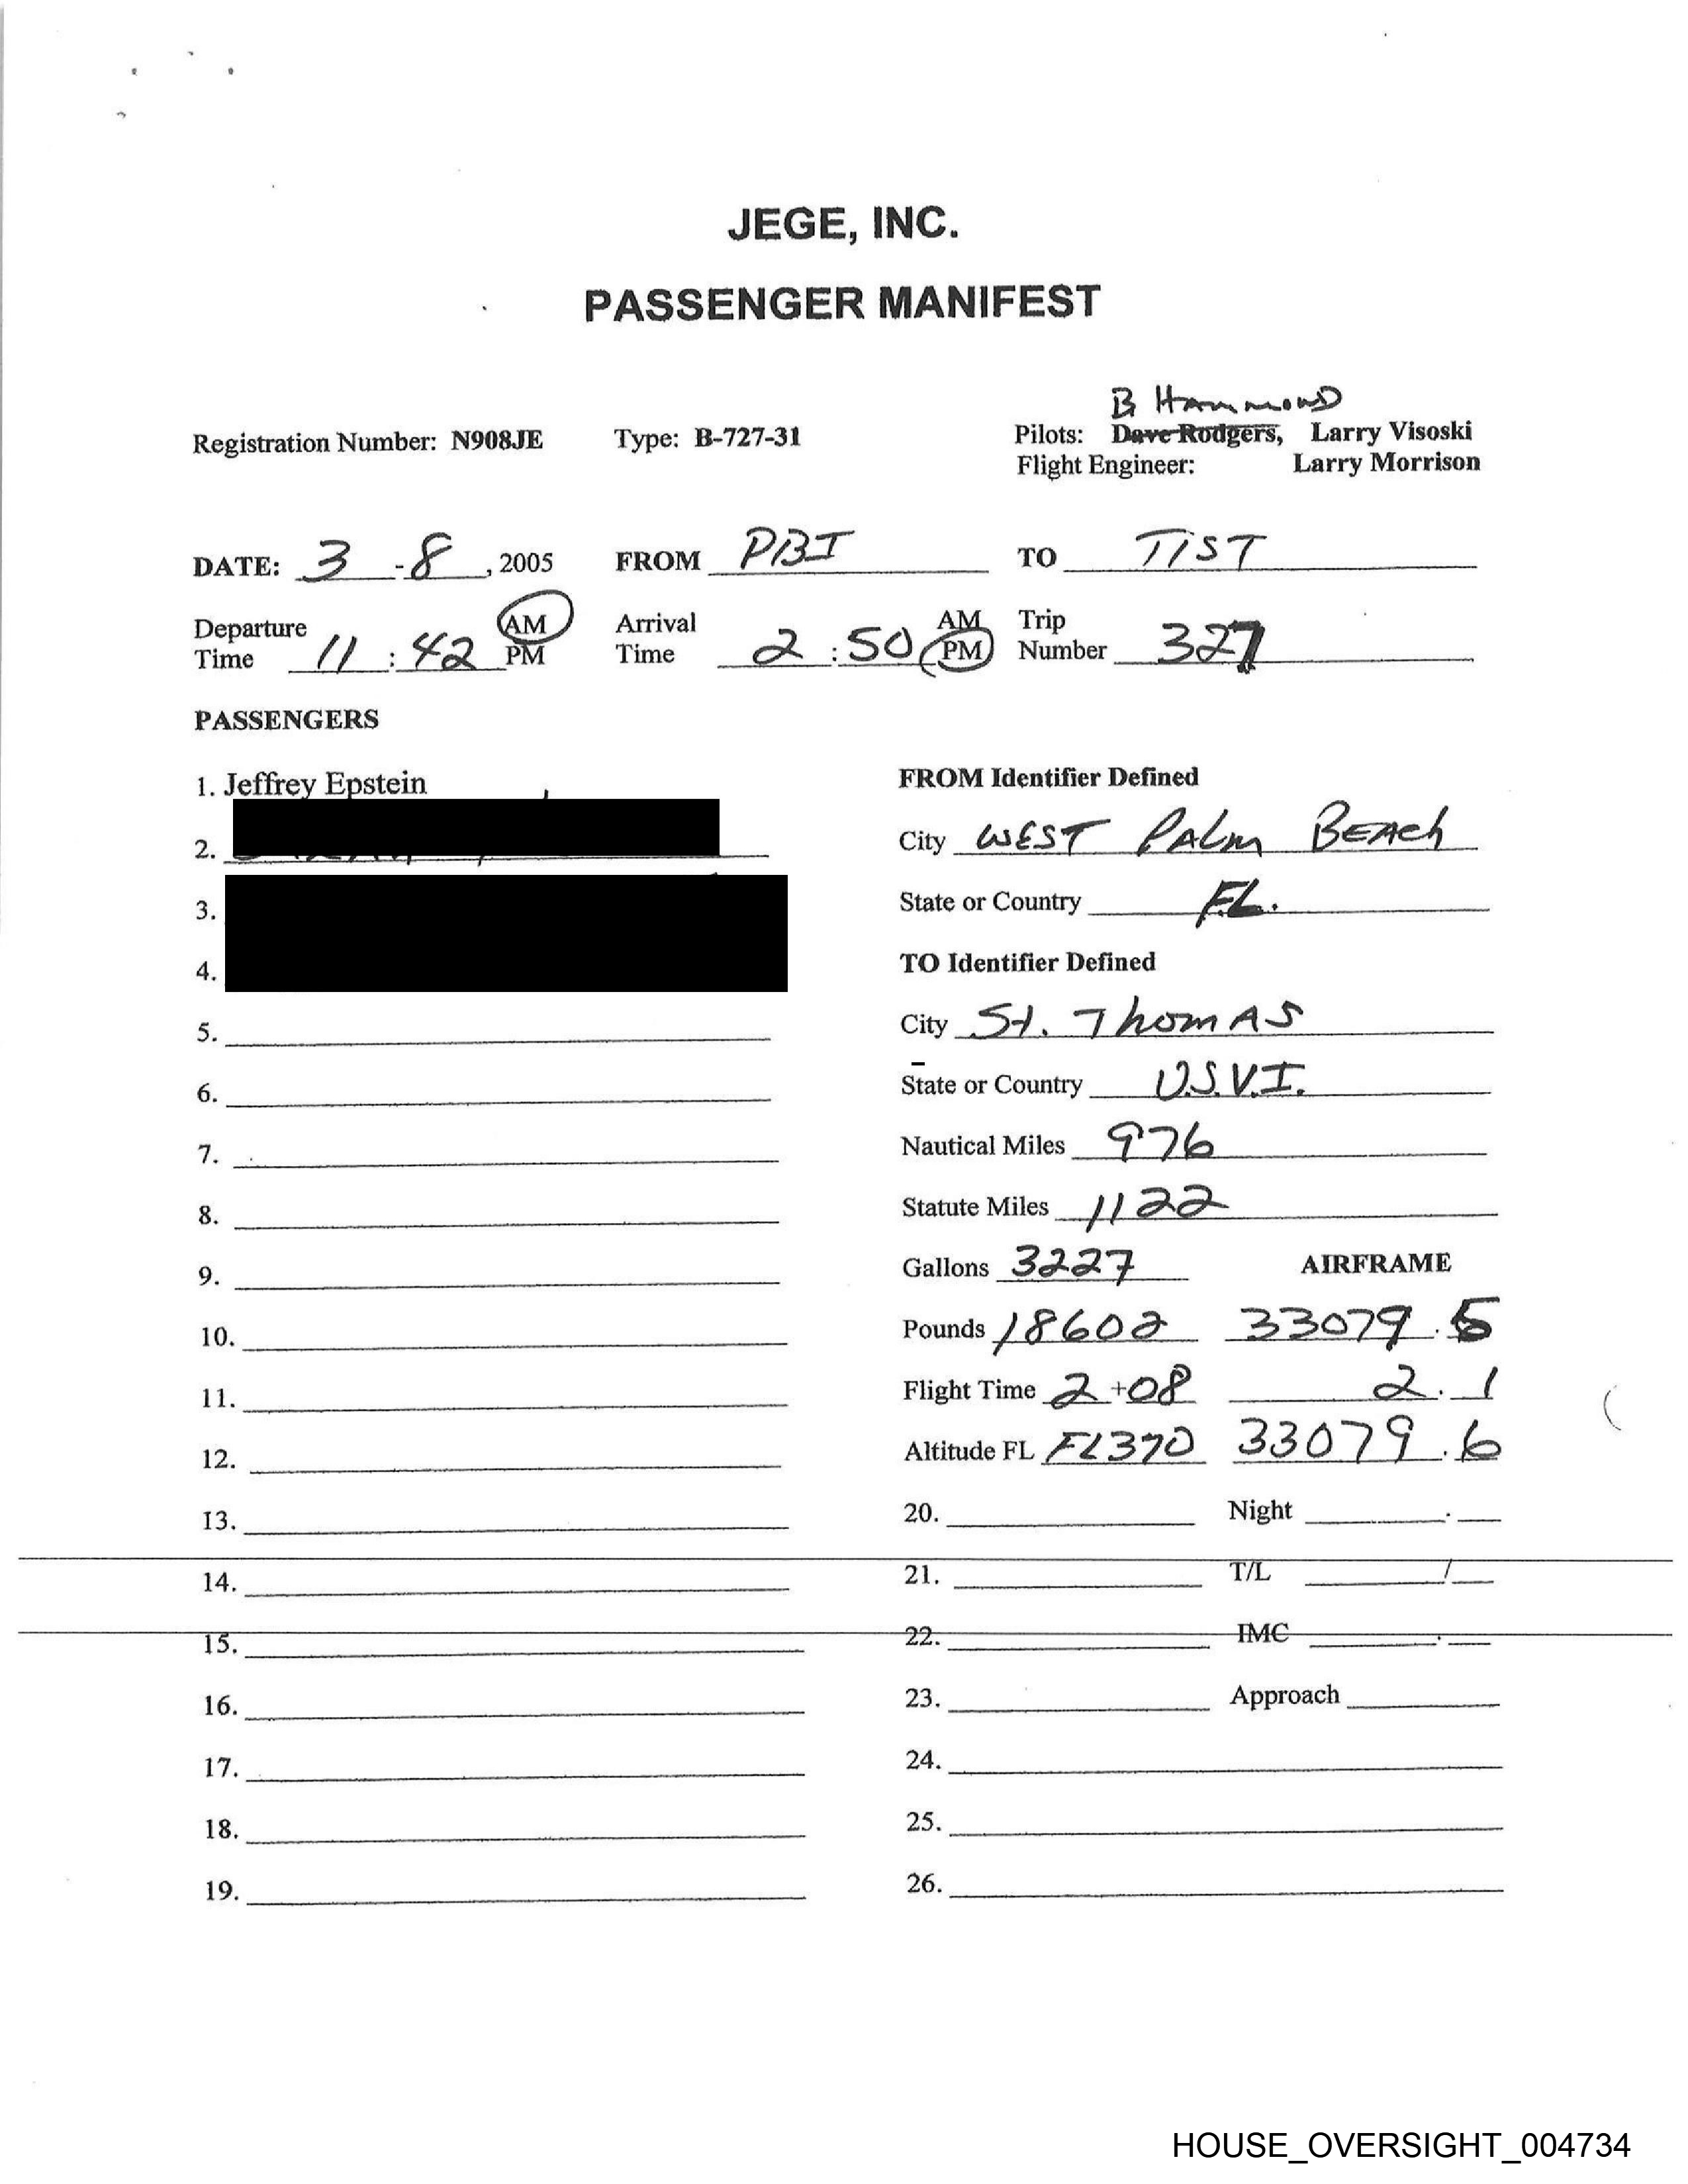 JEGE, INC.
PASSENGER MANIFEST
B HAMMOND
Registration Number: N908JE Type: B-727-31 Pilots: Dave Rodgers, Larry Visoski
Flight Engineer: Larry Morrison
DATE: 3 - 8, 2005 FROM PBI TO TIST
Departure Time 11 : 42 AM PM Arrival Time 2 : 50 AM PM Trip Number 327
PASSENGERS
1. Jeffrey Epstein FROM Identifier Defined
2. City WEST PALM BEACH
3. State or Country FL.
4. TO Identifier Defined
5. City St. ThomAS
6. State or Country U.S.V.I.
7. Nautical Miles 976
8. Statute Miles 1122
9. Gallons 3227 AIRFRAME
10. Pounds 18602 33079.5
11. Flight Time 2 +08 2.1
12. Altitude FL FL370 33079.6
13. 20. Night .
14. 21. T/L /
15. 22. IMC .
16. 23. Approach
17. 24.
18. 25.
19. 26.
HOUSE_OVERSIGHT_004734